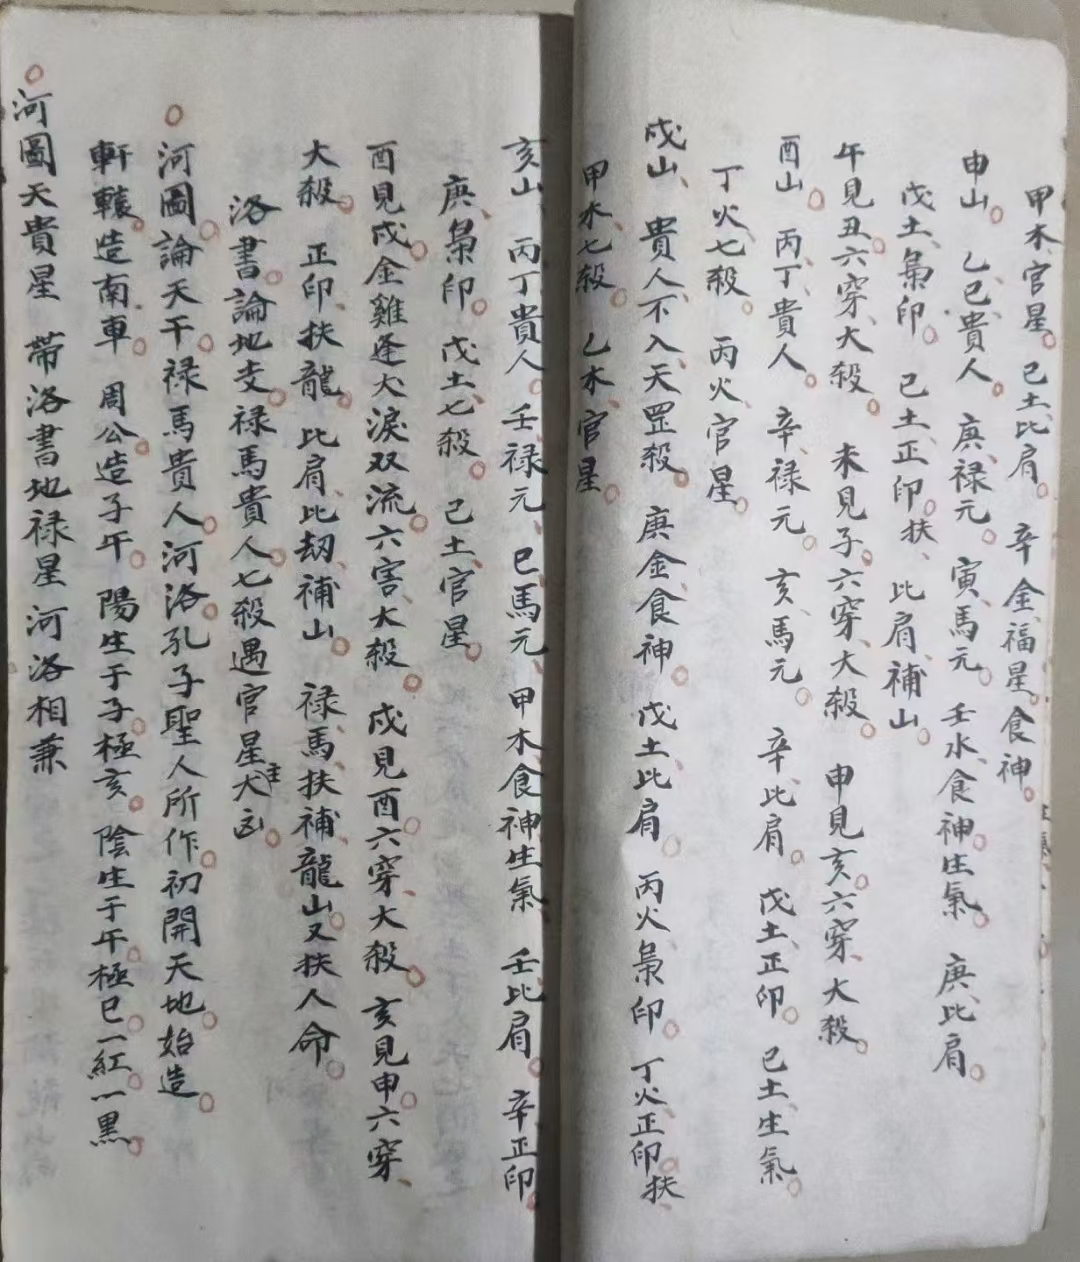 甲木官星。己土、比肩。辛金、福星。食神。
申山。乙己、貴人。庚、禄元。寅、馬元。壬水、食神。生氣。庚、比肩。
戊土、梟印。己土、正印。扶、比肩、補山。
午見丑。六穿、大殺。未見子。六穿、大殺。申見亥。六穿、大殺。
酉山。丙、丁、貴人。辛、禄元。亥、馬元。辛、比肩。戊土、正印。己土、生氣。
丁火七殺。丙火、官星。
戌山、貴人不入、天罡殺。庚金、食神。戊土比肩。丙火、梟印。丁火、正印。扶、
甲木七殺。乙木、官星。
亥山、丙丁貴人。壬禄元、巳馬元、甲木、食神、生氣、壬比肩。辛、正印。
庚、梟印。戊土、七殺。己土、官星。
酉見戌。金雞逢犬淚双流。六害、大殺。戌見酉。六穿、大殺。亥見申。六穿、
大殺。正印、扶龍。比肩、比劫、補山。禄、馬、扶補、龍山。又扶人命。
洛書。論地支。禄馬貴人。七殺遇官星主大凶。
河圖。論天干。禄馬貴人。河洛。孔子聖人所作。初開天地。始造。
軒轅。造南車。周公。造子午。陽生于子。極亥。陰生于午。極巳。一紅。一黑。
河圖天貴星 帶洛書地禄星 河洛相兼